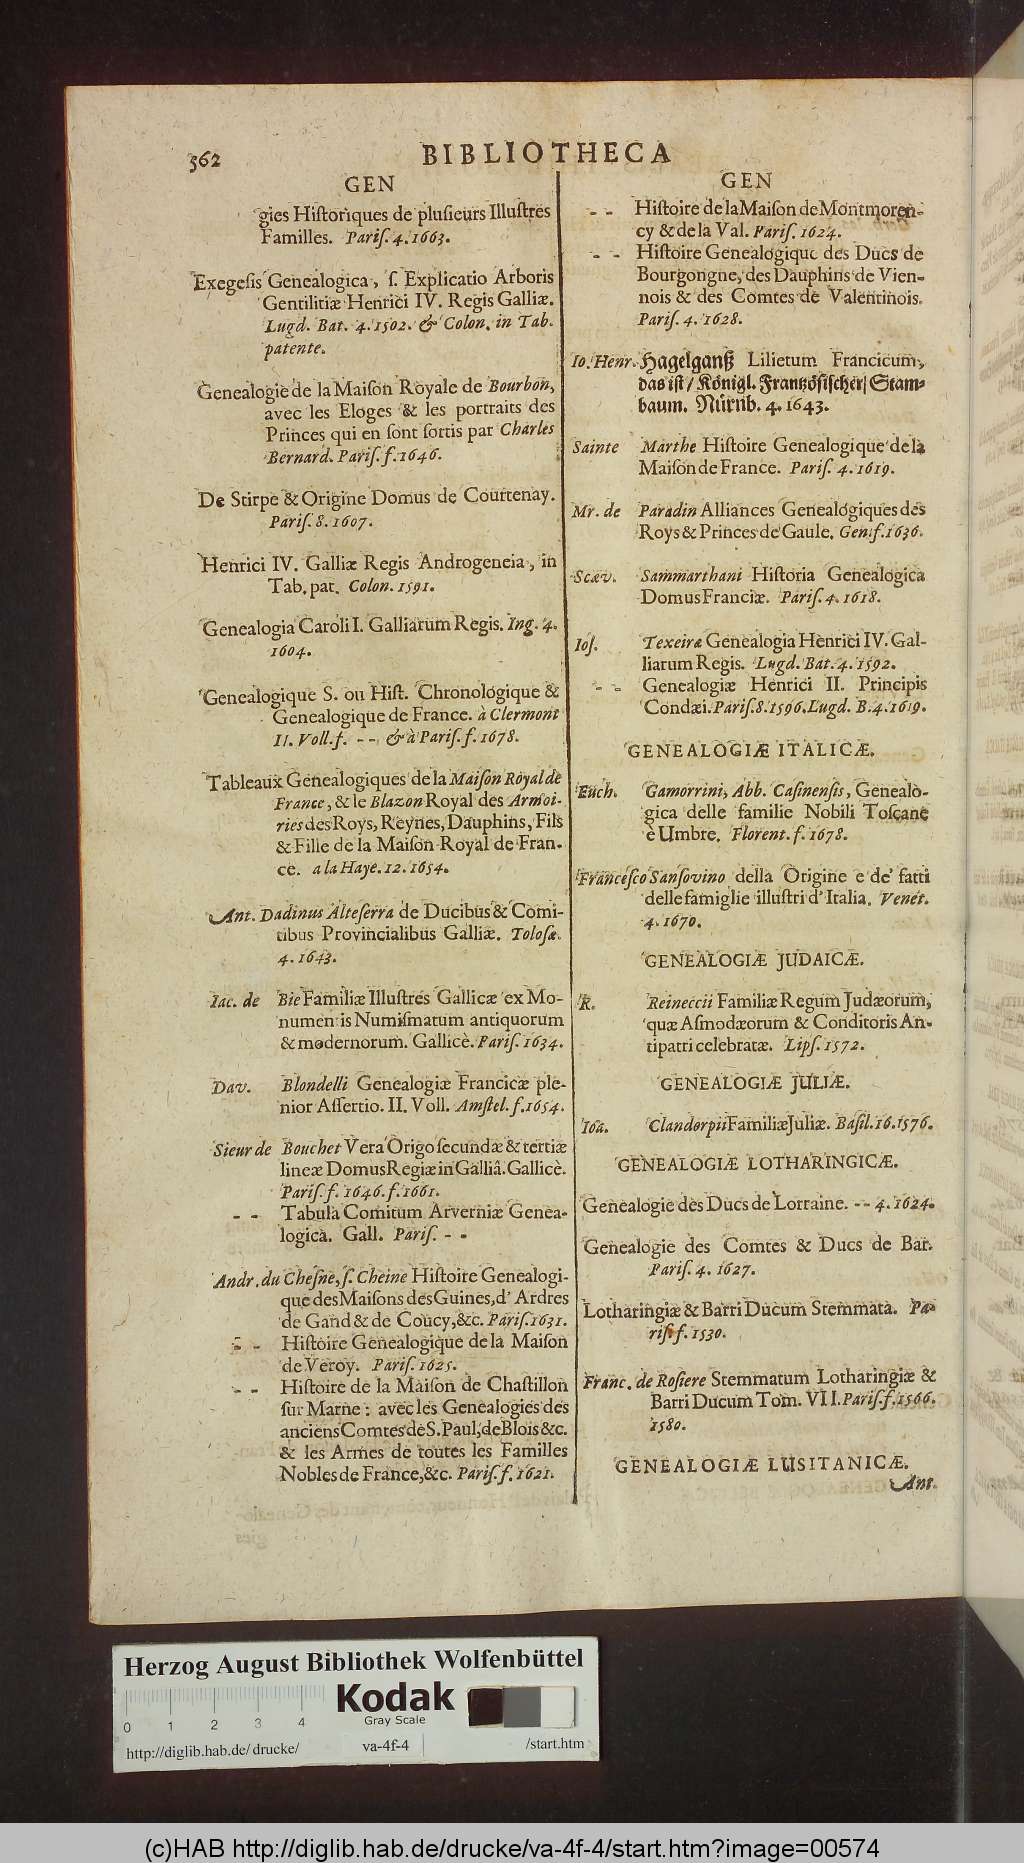 562
BIBLIOTHECA
GEN
gies Hiſtoriques de pluſieurs Illuſtres
Familles. Pariſ. 4. 1663.
Exegeſis Genealogica, ſ. Explicatio Arboris
Gentilitiæ Henrici IV. Regis Galliæ.
Lugd. Bat. 4. 1592. & Colon. in Tab.
patente.
Genealogie de la Maiſon Royale de Bourbon,
avec les Eloges & les portraits des
Princes qui en ſont ſortis par Charles
Bernard. Pariſ. f. 1646.
De Stirpe & Origine Domus de Courtenay.
Pariſ. 8. 1607.
Henrici IV. Galliæ Regis Androgeneia, in
Tab. pat. Colon. 1591.
Genealogia Caroli I. Galliarum Regis. Ing. 4.
1604.
Genealogique S. ou Hiſt. Chronologique &
Genealogique de France. à Clermont
II. Voll. f. - - & à Pariſ. f. 1678.
Tableaux Genealogiques de la Maiſon Royal de
France, & le Blazon Royal des Armoi-
ries des Roys, Reynes, Dauphins, Fils
& Fille de la Maiſon Royal de Fran-
ce. a la Haye. 12. 1654.
Ant. Dadinus Alteſerra de Ducibus & Comi-
tibus Provincialibus Galliæ. Toloſæ.
4. 1643.
Iac. de Bie Familiæ Illuſtres Gallicæ ex Mo-
numentis Numiſmatum antiquorum
& modernorum. Gallicè. Pariſ. 1634.
Dav. Blondelli Genealogiæ Francicæ ple-
nior Aſſertio. II. Voll. Amſtel. f. 1654.
Sieur de Bouchet Vera Origo ſecundæ & tertiæ
lineæ Domus Regiæ in Galliâ. Gallicè.
Pariſ. f. 1646. f. 1661.
- - Tabula Comitum Arverniæ Genea-
logica. Gall. Pariſ. - -
Andr. du Cheſne, ſ. Cheine Hiſtoire Genealogi-
que des Maiſons des Guines, d' Ardres
de Gand & de Coucy, &c. Pariſ. 1631.
- - Hiſtoire Genealogique de la Maiſon
de Veroy. Pariſ. 1625.
- - Hiſtoire de la Maiſon de Chaſtillon
ſur Marne: avec les Genealogies des
anciens Comtes de S. Paul, de Blois &c.
& les Armes de toutes les Familles
Nobles de France, &c. Pariſ. f. 1621.
GEN
- - Hiſtoire de la Maiſon de Montmoren-
cy & de la Val. Pariſ. 1624.
- - Hiſtoire Genealogique des Ducs de
Bourgongne, des Dauphins de Vien-
nois & des Comtes de Valentinois.
Pariſ. 4. 1628.
Io. Henr. Hagelganß Lilietum Francicum,
das iſt / Königl. Frantzöſiſcher Stam-
baum. Nürnb. 4. 1643.
Sainte Marthe Hiſtoire Genealogique de la
Maiſon de France. Pariſ. 4. 1619.
Mr. de Paradin Alliances Genealogiques des
Roys & Princes de Gaule. Gen. f. 1636.
Scæv. Sammarthani Hiſtoria Genealogica
Domus Franciæ. Pariſ. 4. 1618.
Ioſ. Texeiræ Genealogia Henrici IV. Gal-
liarum Regis. Lugd. Bat. 4. 1592.
- - Genealogiæ Henrici II. Principis
Condæi. Pariſ. 8. 1596. Lugd. B. 4. 1619.
GENEALOGIÆ ITALICÆ.
Euch. Gamorrini, Abb. Caſinenſis, Genealo-
gica delle familie Nobili Toſcane
è Umbre. Florent. f. 1678.
Franceſco Sanſovino della Origine e de' fatti
delle famiglie illuſtri d' Italia. Venet.
4. 1670.
GENEALOGIÆ JUDAICÆ.
R. Reineccii Familiæ Regum Judæorum,
quæ Aſmodæorum & Conditoris An-
tipatri celebratæ. Lipſ. 1572.
GENEALOGIÆ JULIÆ.
Ioa. Clandorpii Familiæ Juliæ. Baſil. 16. 1576.
GENEALOGIÆ LOTHARINGICÆ.
Genealogie des Ducs de Lorraine. - - 4. 1624.
Genealogie des Comtes & Ducs de Bar.
Pariſ. 4. 1627.
Lotharingiæ & Barri Ducum Stemmata. Pa-
riſ. f. 1530.
Franc. de Roſiere Stemmatum Lotharingiæ &
Barri Ducum Tom. VII. Pariſ. f. 1566.
1580.
GENEALOGIÆ LUSITANICÆ.
Ant.
Herzog August Bibliothek Wolfenbüttel
Kodak
Gray Scale
0 1 2 3 4
http://diglib.hab.de/drucke/ va-4f-4 /start.htm
(c)HAB http://diglib.hab.de/drucke/va-4f-4/start.htm?image=00574